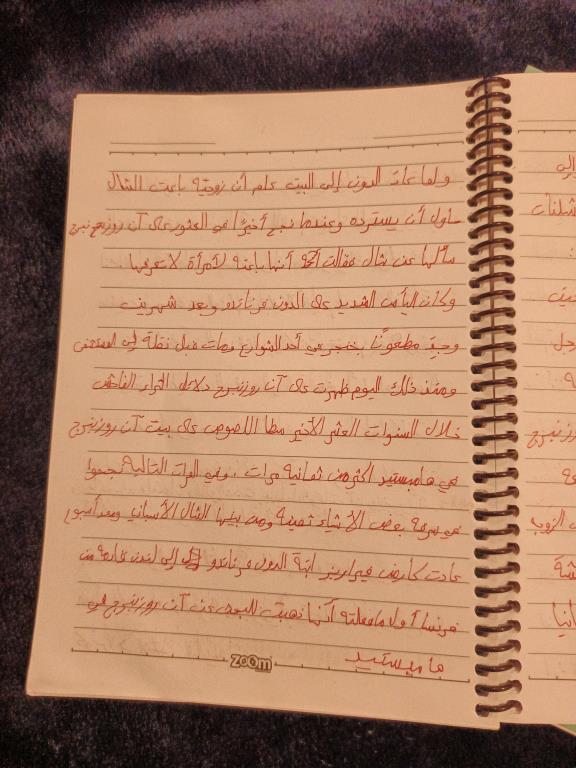 ولما عاد الدون إلى البيت علم أن زوجته باعت الشال
حاول أن يسترده وعندما نجح أخيرًا في العثور على آن روزنبرج
سألها عن شال فقالت أنها باعته لأمرأة لا تعرفها
وكان اليأس الشديد على الدون فرناندو وبعد شهرين
وجد مطعونًا بخنجر في أحد الشوارع ومات قبل نقلة إلى المستشفى
ومنذ ذلك اليوم ظهرت على آن روزنبرج دلائل الثراء الفاحش
خلال السنوات العشر الأخير سطا اللصوص على بيت آن روزنبرج
في هامبستيد أكثر من ثمانية مرات . وفي المرات التالية نجحوا
في سرقة بعض الأشياء ثمينة ومن بينها الشال الأسباني وبعد أسبوع
عادت كارمن فيراريز ابنة الدون فرناندو إلى لندن قادمة من
فرنسا أول ما فعلته أنها ذهبت للبحث عن آن روزنبرج في
هامبستيد
zoom
إلى
شلنات
رجل
روزنبرج
الزوج